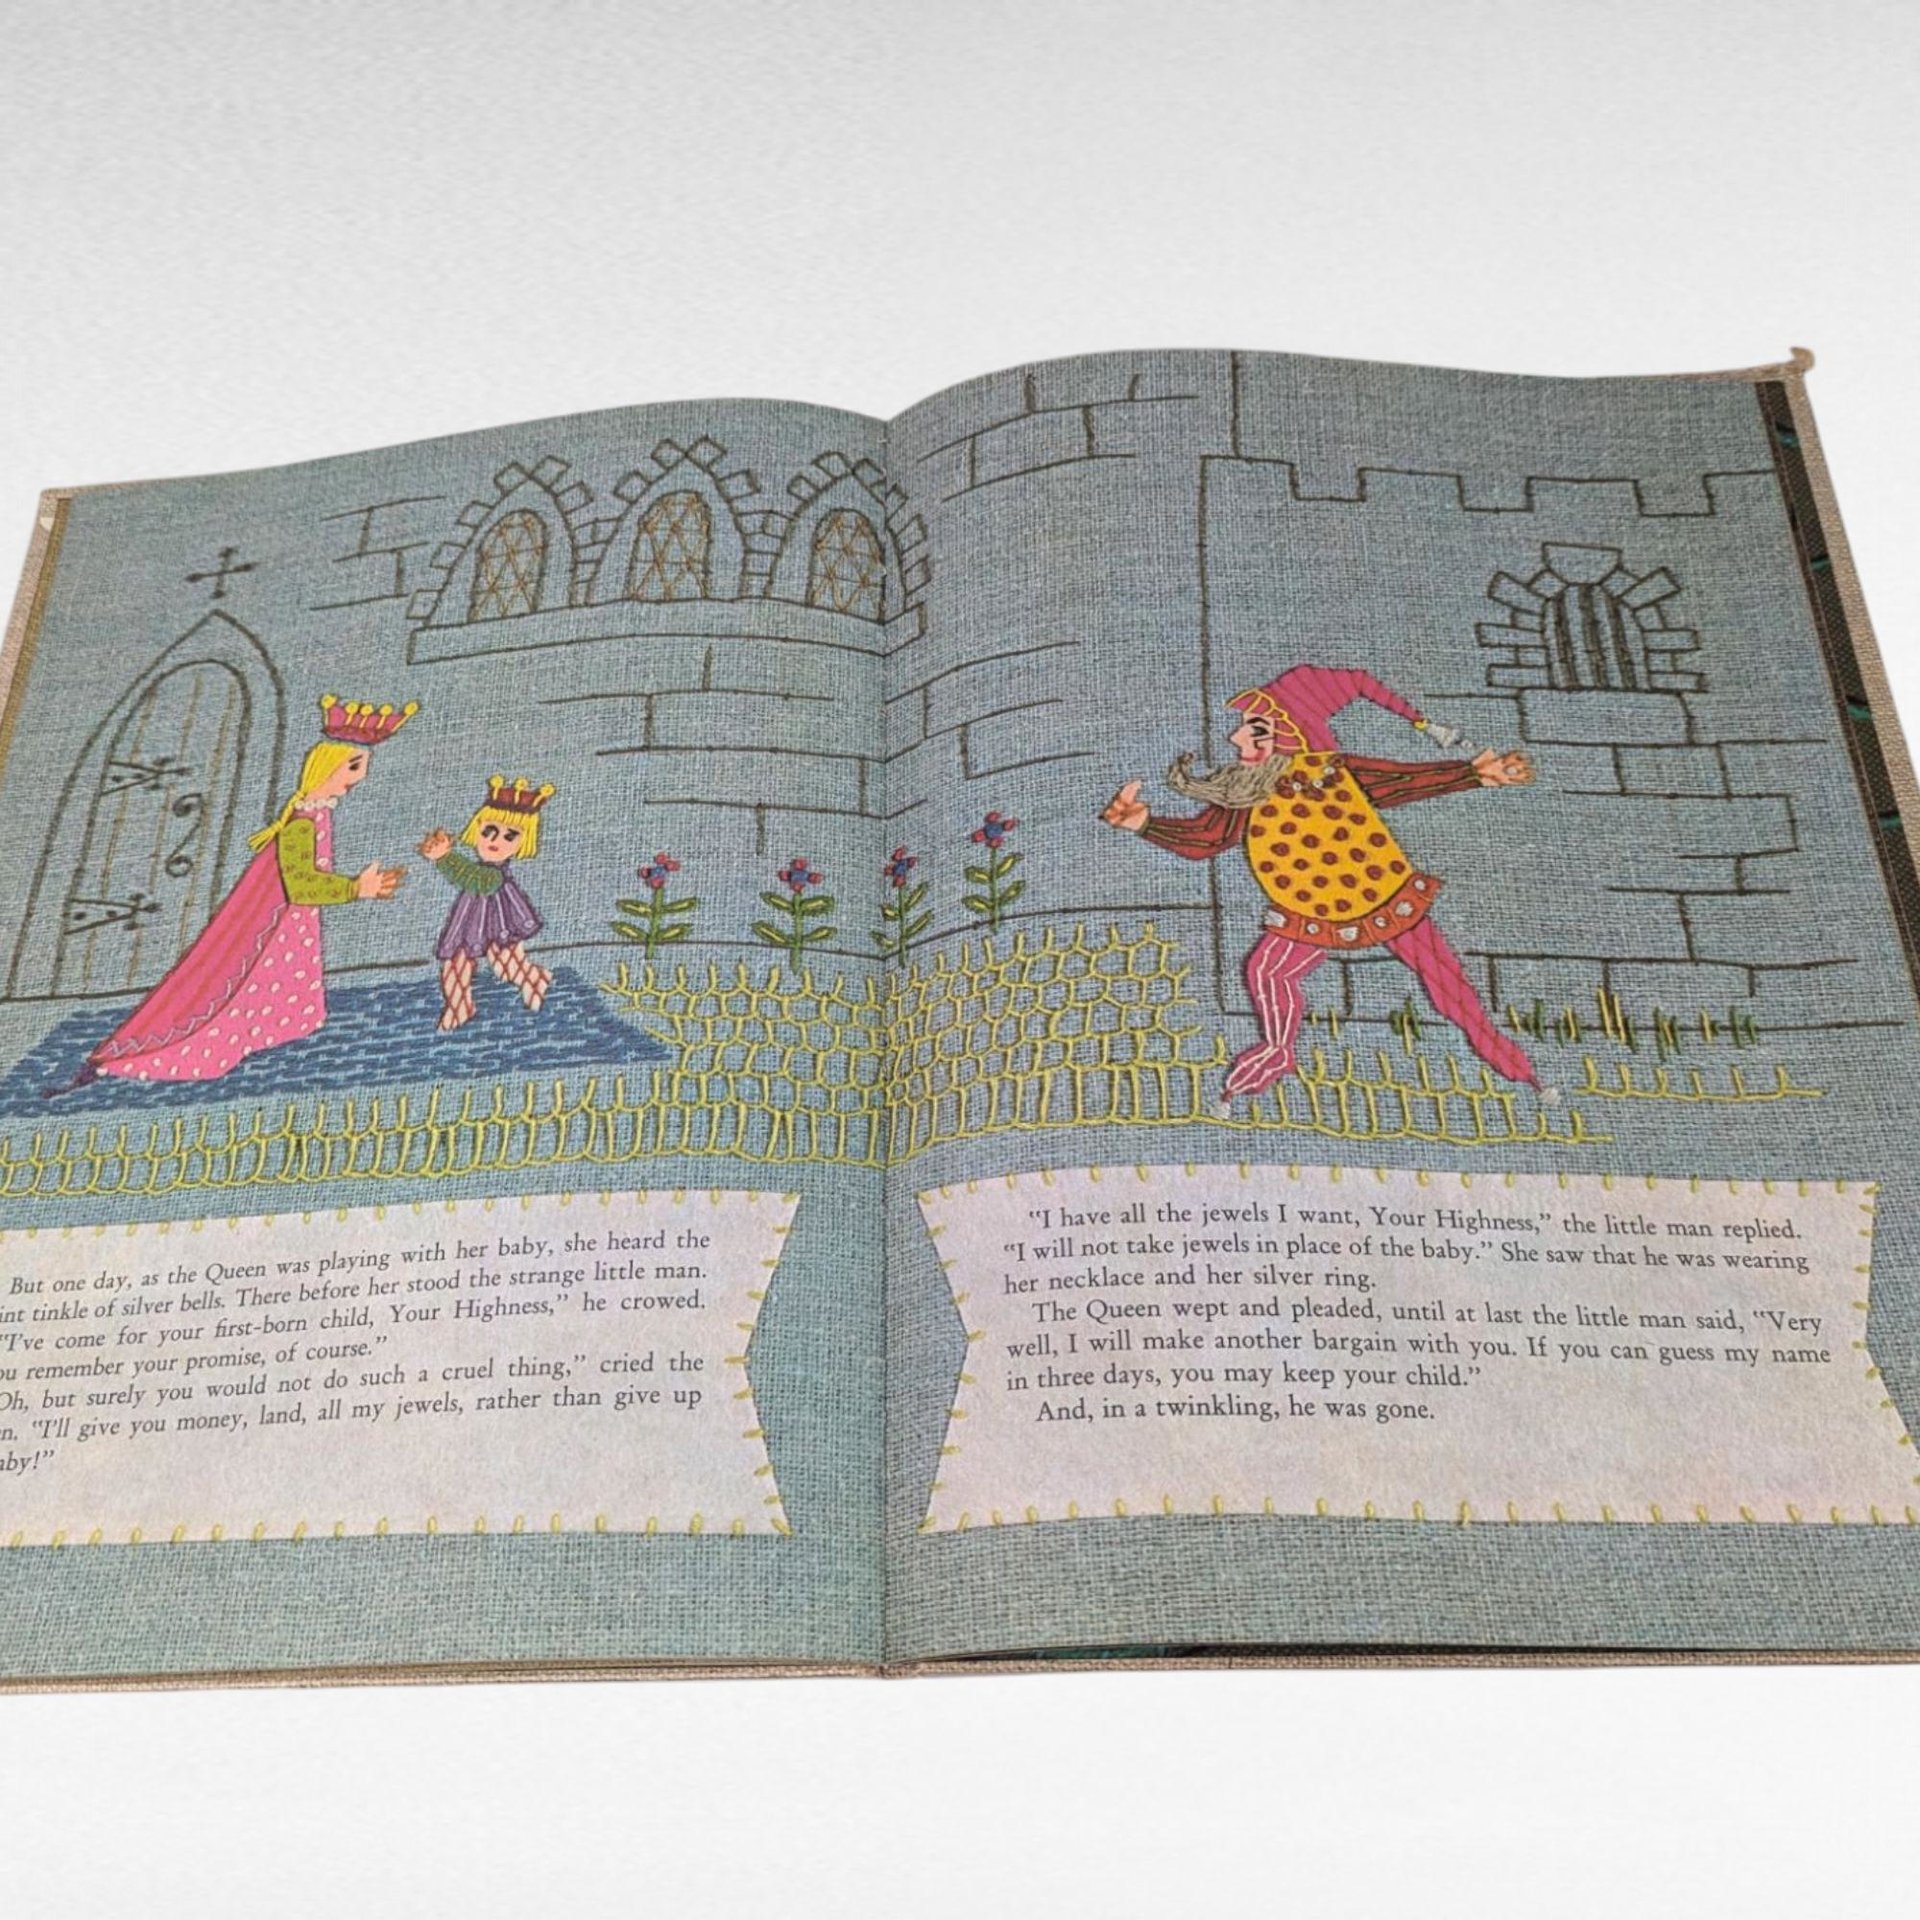 But one day, as the Queen was playing with her baby, she heard the
tinkle of silver bells. There before her stood the strange little man.
"I've come for your first-born child, Your Highness," he crowed.
remember your promise, of course."
Oh, but surely you would not do such a cruel thing," cried the
"I'll give you money, land, all my jewels, rather than give up
"I have all the jewels I want, Your Highness," the little man replied.
"I will not take jewels in place of the baby." She saw that he was wearing
her necklace and her silver ring.
The Queen wept and pleaded, until at last the little man said, "Very
well, I will make another bargain with you. If you can guess my name
in three days, you may keep your child."
And, in a twinkling, he was gone.